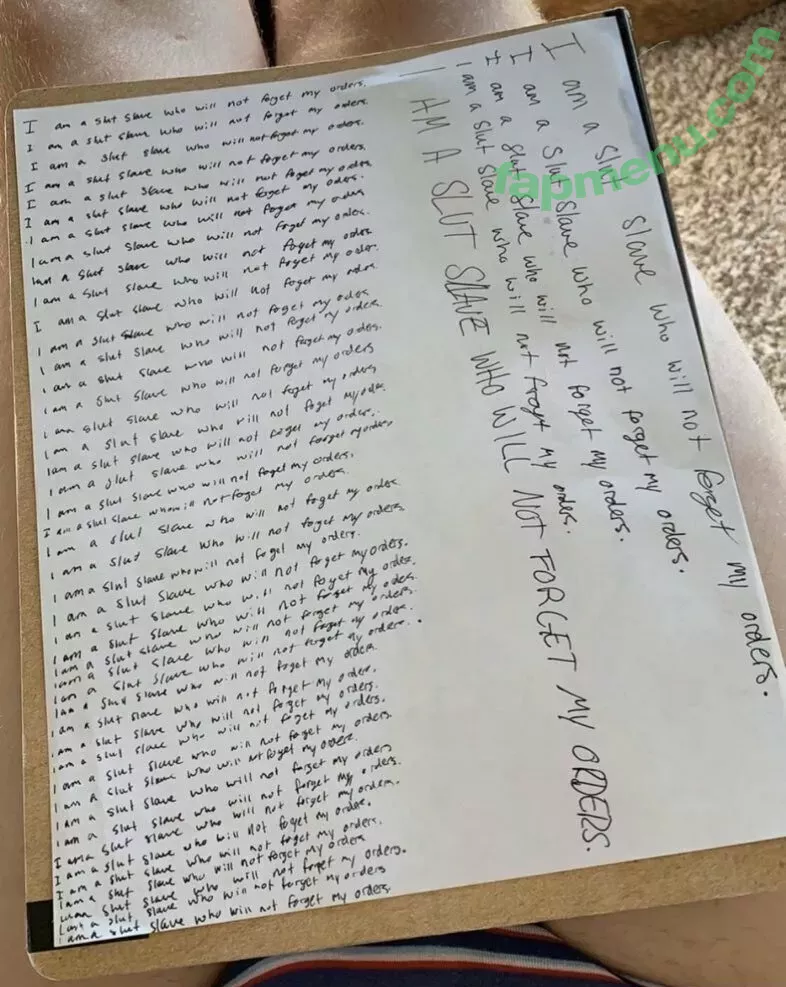 I am a slut slave who will not forget my orders.
I am a slut slave who will not forget my orders.
I am a slut slave who will not forget my orders.
I am a slut slave who will not forget my orders.
I am a slut slave who will not forget my orders.
I am a slut slave who will not forget my orders.
I am a slut slave who will not forget my orders.
I am a slut slave who will not forget my orders.
I am a slut slave who will not forget my orders
I am a slut slave who will not forget my orders.
I am a slut slave who will not forget my orders.
I am a slut slave who will not forget my orders
I am a slut slave who will not forget my orders
I am a slut slave who will not forget my orders.
I am a slut slave who will not forget my orders
I am a slut slave who will not forget my orders
I am a slut slave who will not forget my orders.
I am a slut slave who will not forget my orders.
I am a slut slave who will not forget my orders
I am a slut slave who will not forget my orders.
I am a slut slave who will not forget my orders.
I am a slut slave who will not forget my orders
I am a slut slave who will not forget my orders.
I am a slut slave who will not forget my orders.
I am a slut slave who will not forget my orders.
I am a slut slave who will not forget my orders.
I am a slut slave who will not forget my orders.
I am a slut slave who will not forget my orders.
I am a slut slave who will not forget my orders.
I am a slut slave who will not forget my orders.
I am a slut slave who will not forget my orders.
I am a slut slave who will not forget my orders.
I am a slut slave who will not forget my orders.
I am a slut slave who will not forget my orders.
I am a slut slave who will not forget my orders.
I am a slut slave who will not forget my orders.
I am a slut slave who will not forget my orders
I am a slut slave who will not forget my orders.
I am a slut slave who will not forget my orders.
I am a slut slave who will not forget my orders.
I am a slut slave who will not forget my orders.
I am a slut slave who will not forget my orders
I am a slut slave who will not forget my orders.
I am a slut slave who will not forget my orders
I am a slut slave who will not forget my orders.
I am a slut slave who will not forget my orders.
I am a slut slave who will not forget my orders.
I am a slut slave who will not forget my orders.
I am a slut slave who will not forget my orders.
I AM A SLUT SLAVE WHO WILL NOT FORGET MY ORDERS.
fapmenu.com